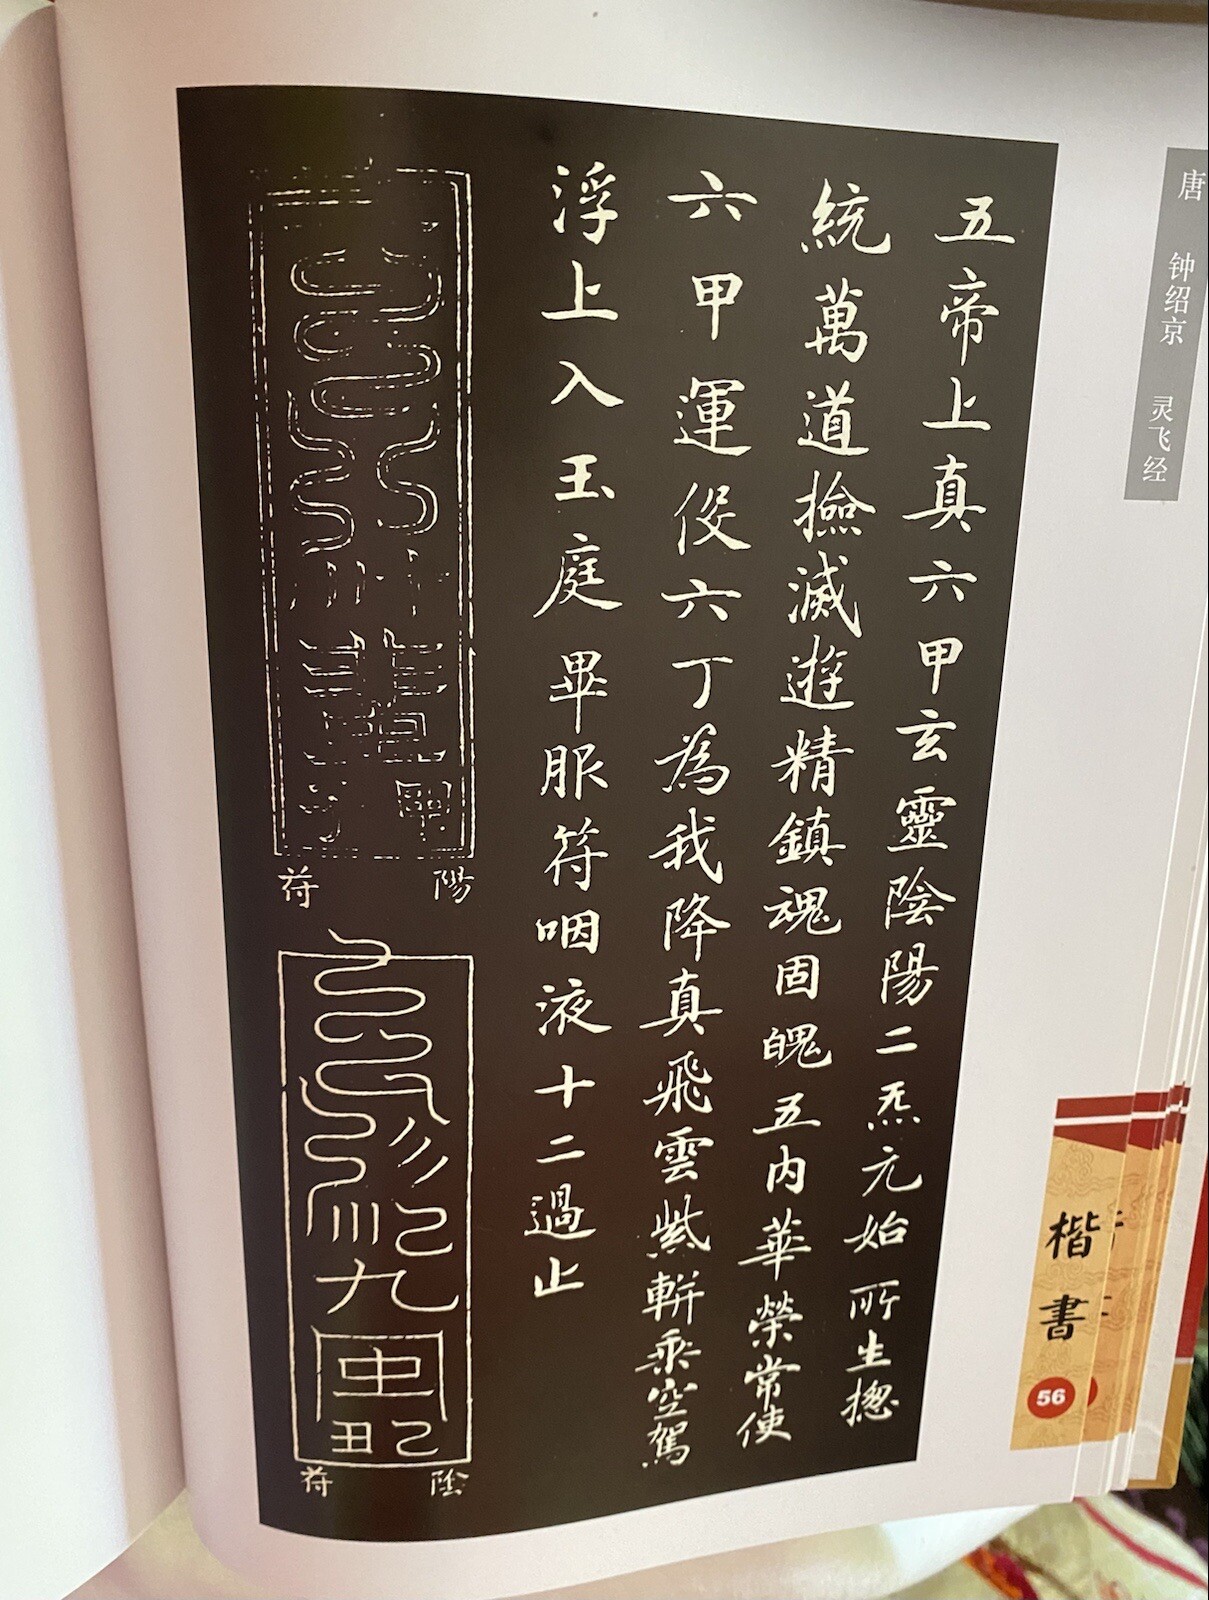 唐 钟绍京 灵飞经
五帝上真六甲玄靈陰陽二炁元始所生揔
統萬道撿滅遊精鎮魂固魄五内華榮常使
六甲運伇六丁為我降真飛雲紫軿乘空駕
浮上入玉庭畢服符咽液十二過止
陽符
陰符
楷書
56